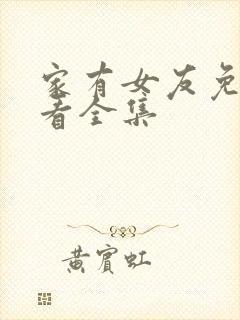 家有女友免
看全集
黄宾虹